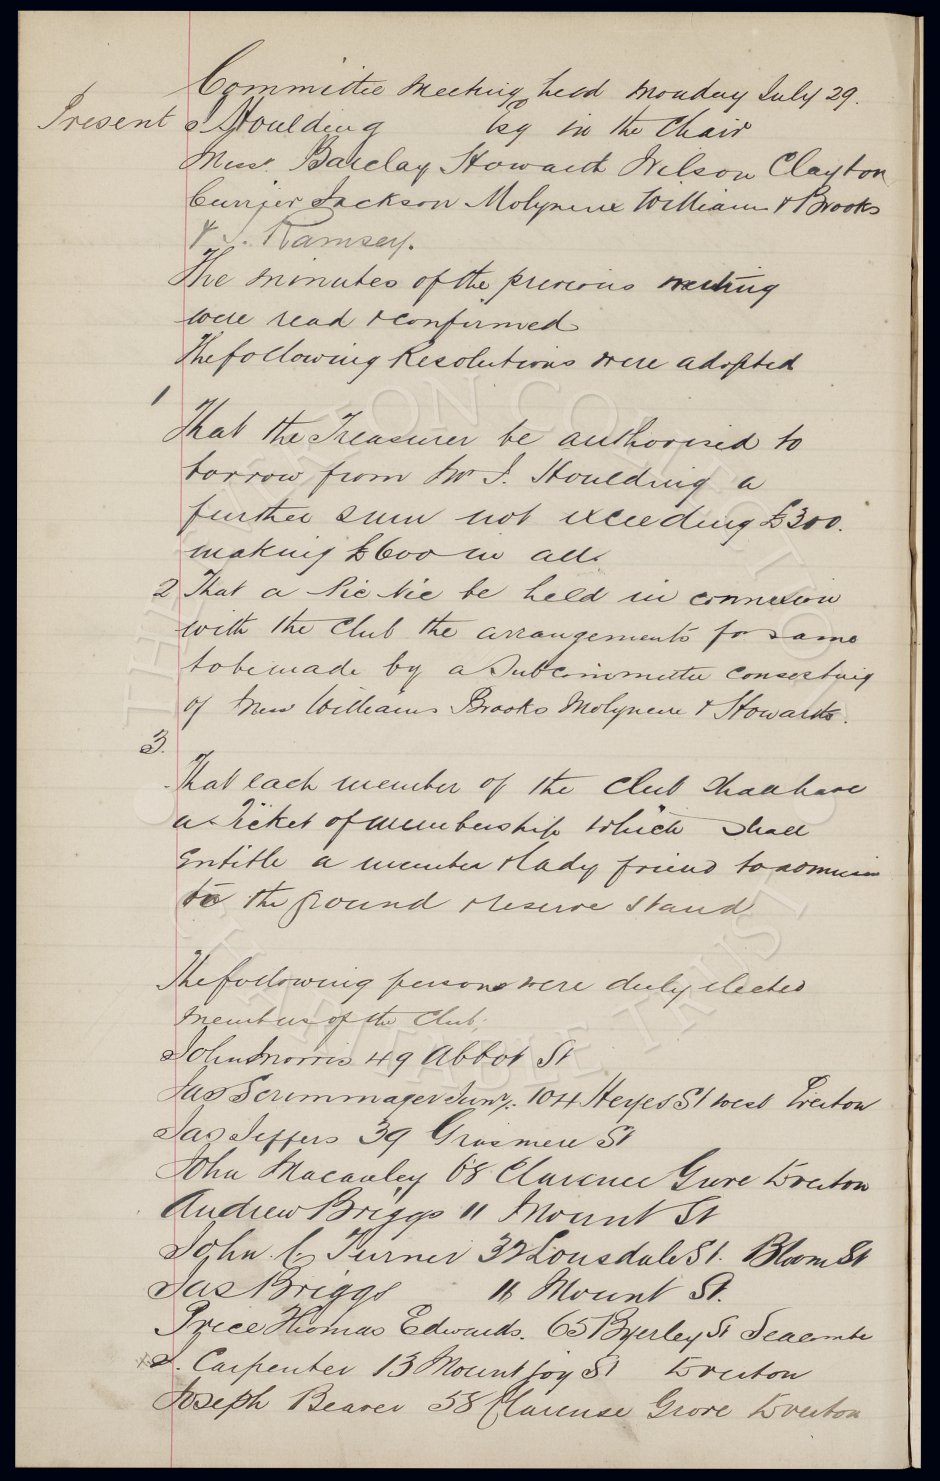 Committee Meeting held Monday July 29.
Present J Houlding Esq in the Chair
Messrs. Barclay Howarth Wilson Clayton
Currier Jackson Molyneux William & Brooks
& J. Ramsey.
The minutes of the previous meeting
were read & confirmed
The following Resolutions were adopted
1
That the Treasurer be authorised to
borrow from Mr J. Houlding a
further sum not exceeding £300.
making £600 in all.
2 That a Pic Nic be held in connexion
with the Club the arrangements for same
to be made by a Subcommittee consisting
of Mess Williams Brooks Molyneux & Howarth.
3.
That each member of the Club shall have
a Ticket of membership which shall
Entitle a member & lady friend to admission
to the ground & reserve stand
The following persons were duly elected
Members of the Club,
John Morris 49 Abbot St
Jas Scrimmager Junr. 104 Heyes St west Everton
Jas Jeffers 39 Grasmere St
John Macauley 68 Clarence Grove Everton
Andrew Briggs 11 Mount St
John C Turner 32 Lonsdale St. Bloom St
Jas Briggs 11 Mount St.
Price Thomas Edwards. 65 Byerley St Seacombe
J. Carpenter 13 Mountjoy St Everton
Joseph Beaver 58 Clarense Grove Everton
THE EVERTON COLLECTION
CHARITABLE TRUST